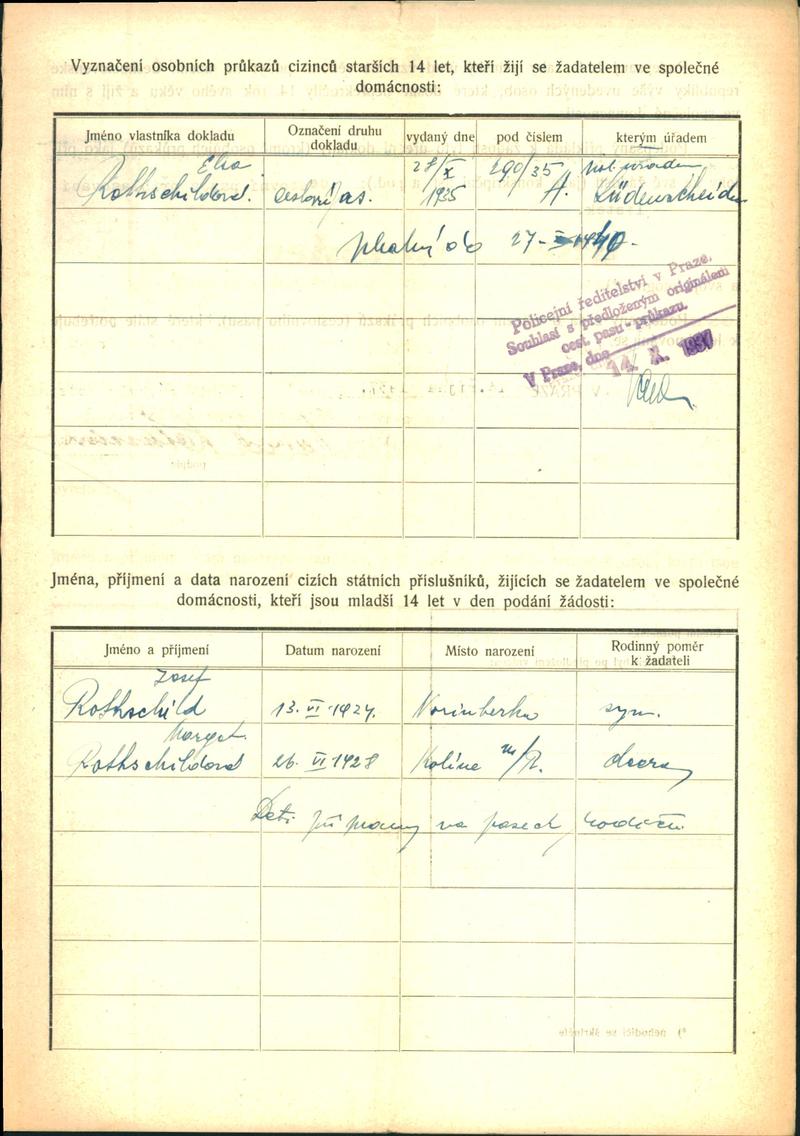 Vyznačení osobních průkazů cizinců starších 14 let, kteří žijí se žadatelem ve společné
domácnosti:
Jméno vlastníka dokladu
Označení druhu
dokladu
vydaný dne
pod číslem
kterým úřadem
Elsa 28/X 290/35 pol. úřadem
Rothschildová. cestovní pas. 1935 A. Lüdenscheidu
platný do 27-
Policejní ředitelství v Praze.
Souhlasí s předloženým originálem
cest. pasu - průkazu.
V Praze, dne 14. X. 1937
Jména, příjmení a data narození cizích státních příslušníků, žijících se žadatelem ve společné
domácnosti, kteří jsou mladší 14 let v den podání žádosti:
Jméno a příjmení
Datum narození
Místo narození
Rodinný poměr
k žadateli
Josef
Rothschild 13. VI 1924. Norinberku syn.
Margot.
Rothschildová 26. VI 1928 Kolíne n/R. dcera
Deti připsany na pasech rodičů.
*) nehodící se škrtněte